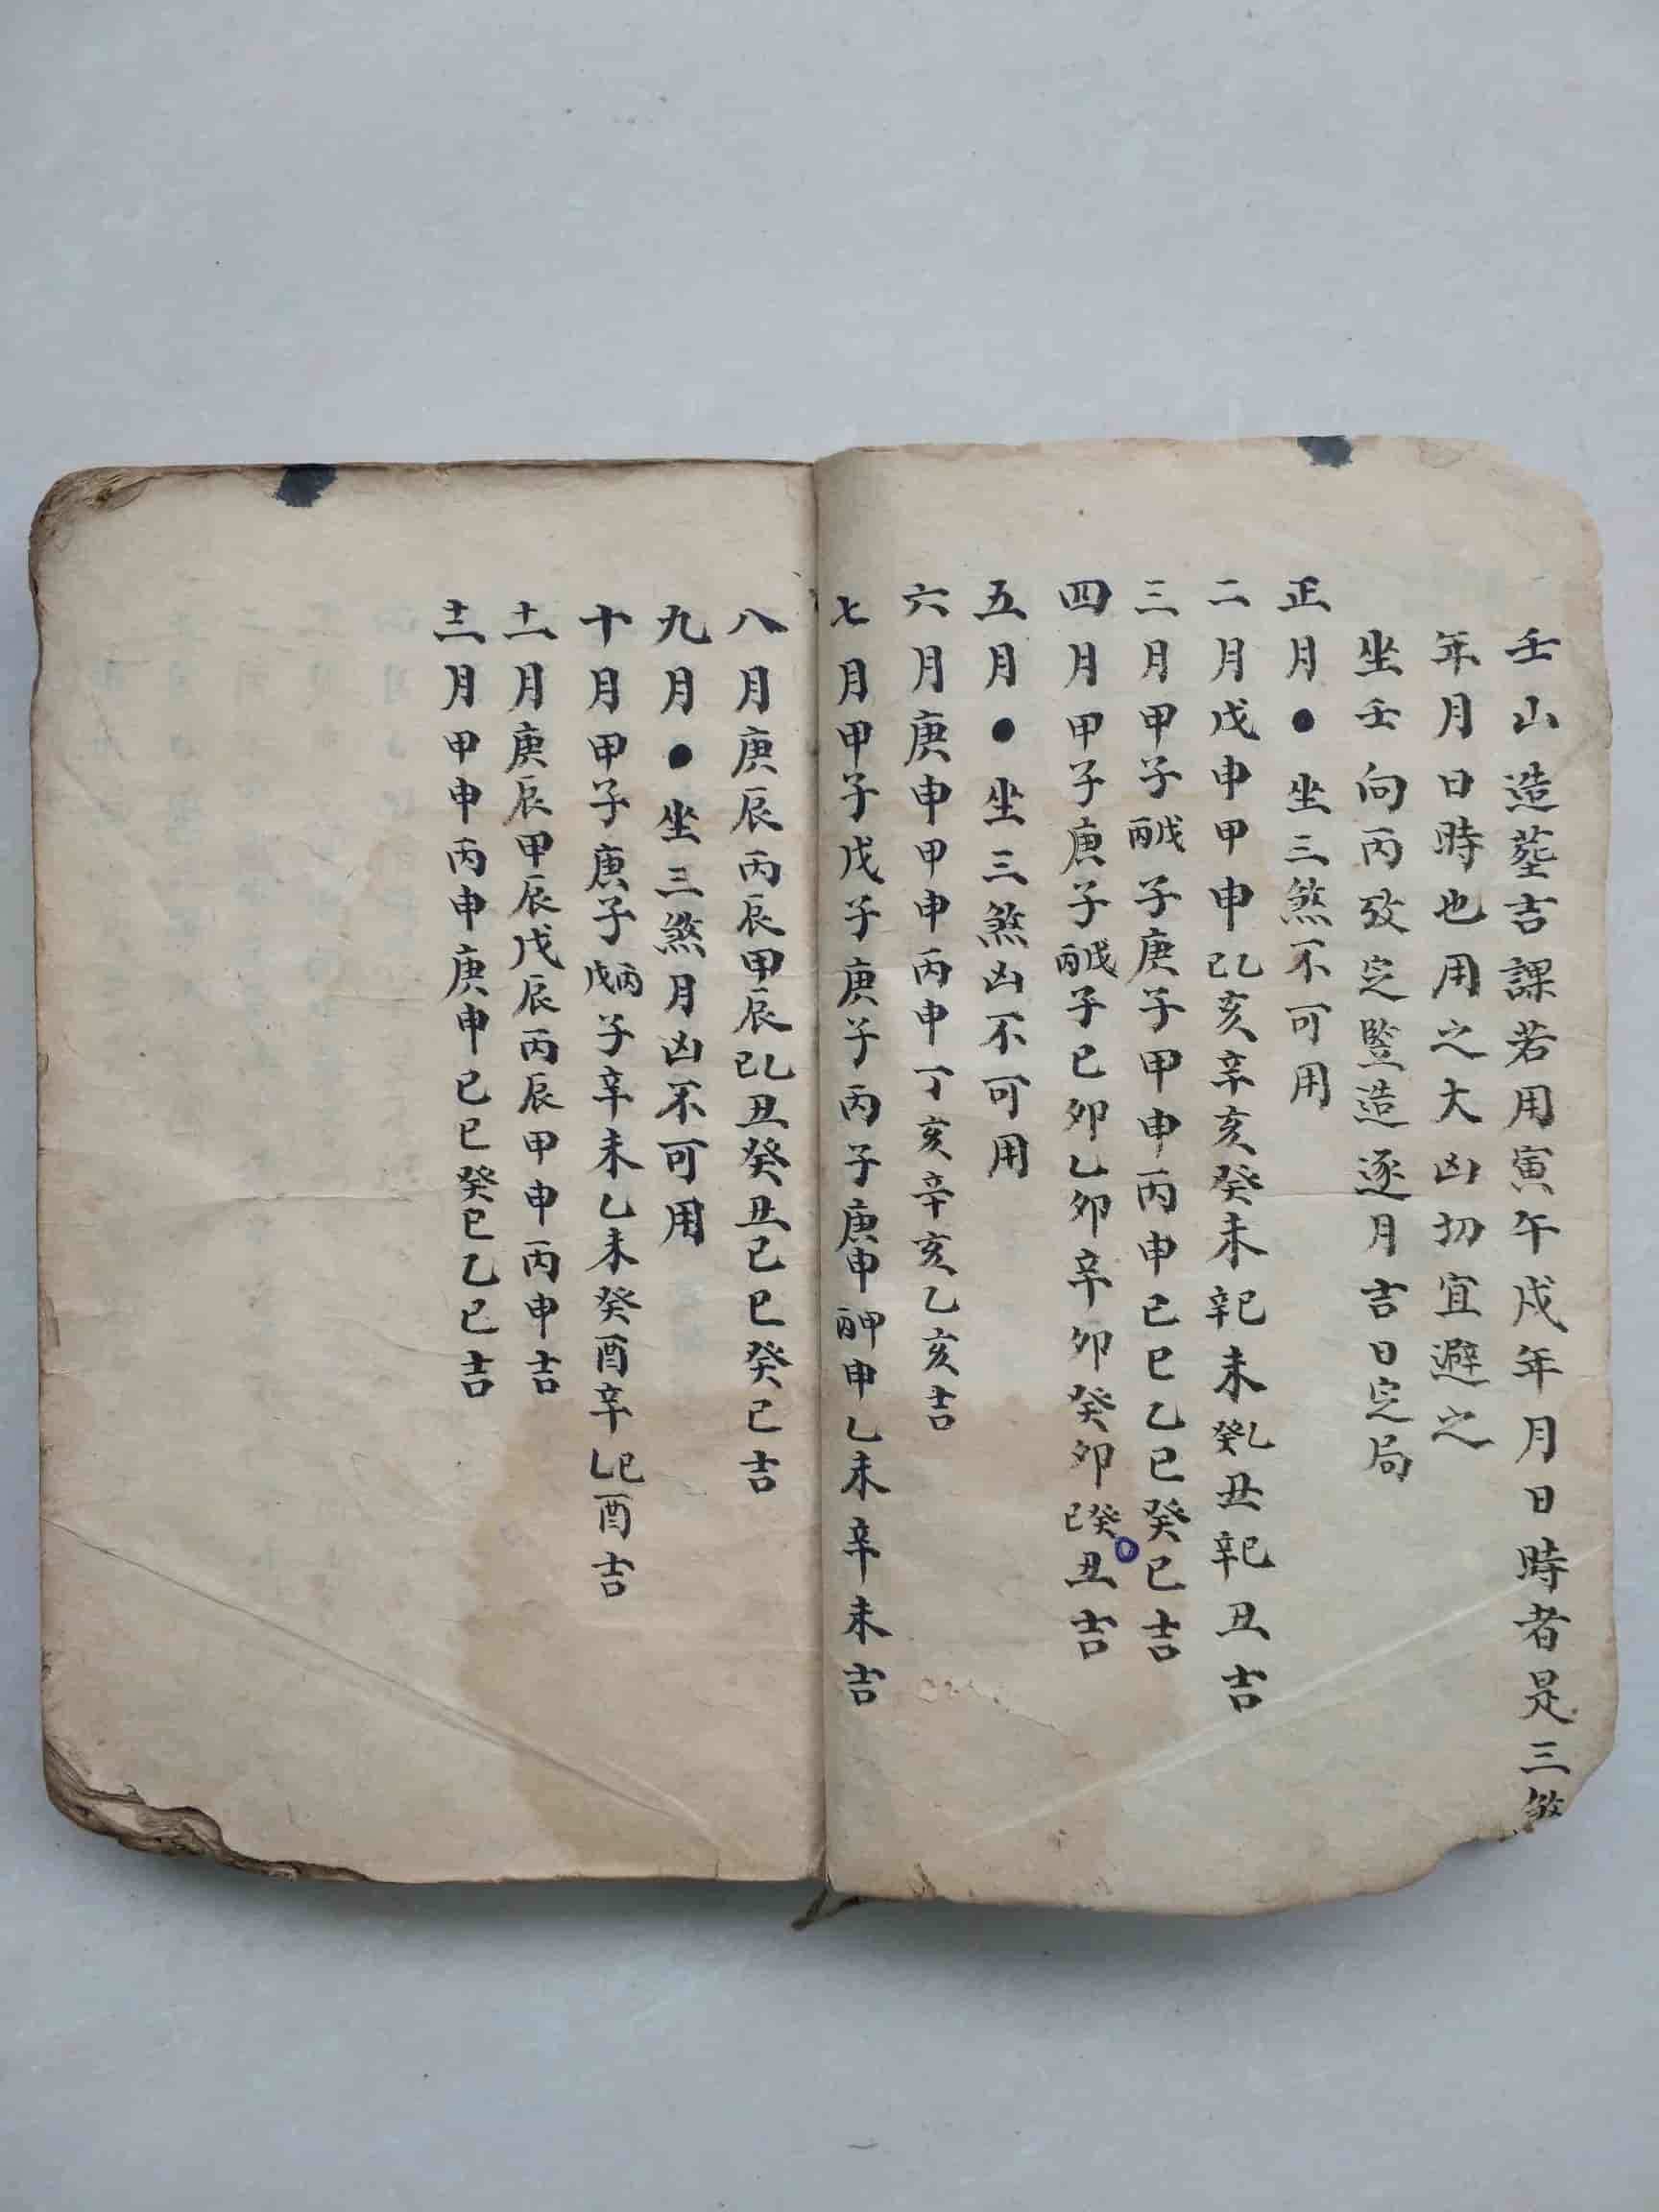 壬山造塟吉課若用寅午戍年月日時者是三煞
年月日時也用之大凶切宜避之
坐壬向丙攷定竪造逐月吉日定局
正月●坐三煞不可用
二月戊申甲申己乙亥辛亥癸未辛己未癸乙丑辛己丑吉
三月甲子丙戊子庚子甲申丙申己巳乙巳癸巳吉
四月甲子庚子丙戊子己卯乙卯辛卯癸卯己癸丑吉
五月●坐三煞凶不可用
六月庚申甲申丙申丁亥辛亥乙亥吉
七月甲子戊子庚子丙子庚申丙甲申乙未辛未吉
八月庚辰丙辰甲辰己乙丑癸丑己巳癸巳吉
九月●坐三煞月凶不可用
十月甲子庚子戊丙子辛未乙未癸酉辛乙己酉吉
十一月庚辰甲辰戊辰丙辰甲申丙申吉
十二月甲申丙申庚申己巳癸巳乙巳吉